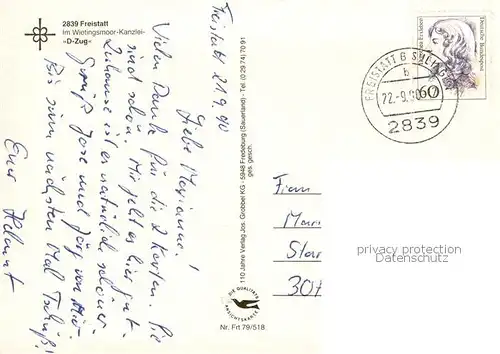 2839 Freistatt
Im Wietingsmoor-Kanzlei-
»D-Zug«
Freistatt 21.9.90
Liebe Marianne!
Vielen Dank für die 2 Karten. Sie
sind schön. Mir geht es hier gut.
Zuhause ist es natürlich schöner.
Grüß Jose und Jörg von mir.
Bis zum nächsten Mal Tschüß!
Euer Helmut
110 Jahre Verlag Jos. Grobbel KG - 5948 Fredeburg (Sauerland) - Tel. (0 29 74) 70 91
ges. gesch.
DIE QUALITÄTS
ANSICHTSKARTE
Nr. Frt 79/518
Deutsche Bundespost
60
FREISTATT B SULINGEN
b
22.-9.90
2839
Frau
Mar
Star
307
privacy protection
Datenschutz